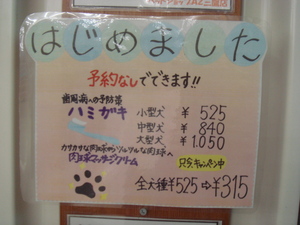 はじめました
予約なしでできます!!
歯周病への予防等
ハミガキ
小型犬 ¥525
中型犬 ¥840
大型犬 ¥1.050
カサカサな肉球からツルツルな肉球へ
肉球マッサージクリーム
只今キャンペーン中
全犬種¥525⇨¥315